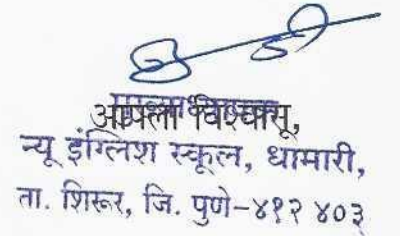 आपला विश्वासू,
न्यू इंग्लिश स्कूल, धामारी,
ता. शिरूर, जि. पुणे-४१२ ४०३